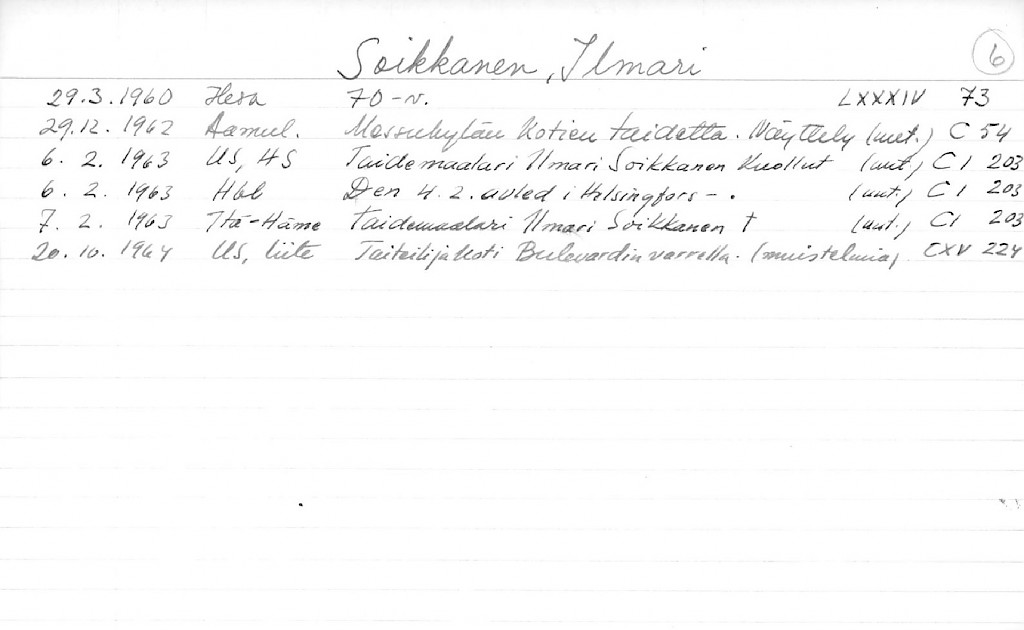 Soikkanen, Ilmari 6
29.3.1960 Hesa 70-v. LXXXIV 73
29.12.1962 Aamul. Messukylän kotien taidetta. Näyttely (uut.) C 54
6. 2. 1963 US, HS Taidemaalari Ilmari Soikkanen kuollut (uut.) CI 203
6. 2. 1963 Hbl Den 4. 2. avled i Helsingfors - . (uut.) CI 203
7. 2. 1963 Itä-Häme Taidemaalari Ilmari Soikkanen † (uut.) CI 203
20. 10. 1964 US, liite Taiteilijakoti Bulevardin varrella. (muistelmia) CXV 224